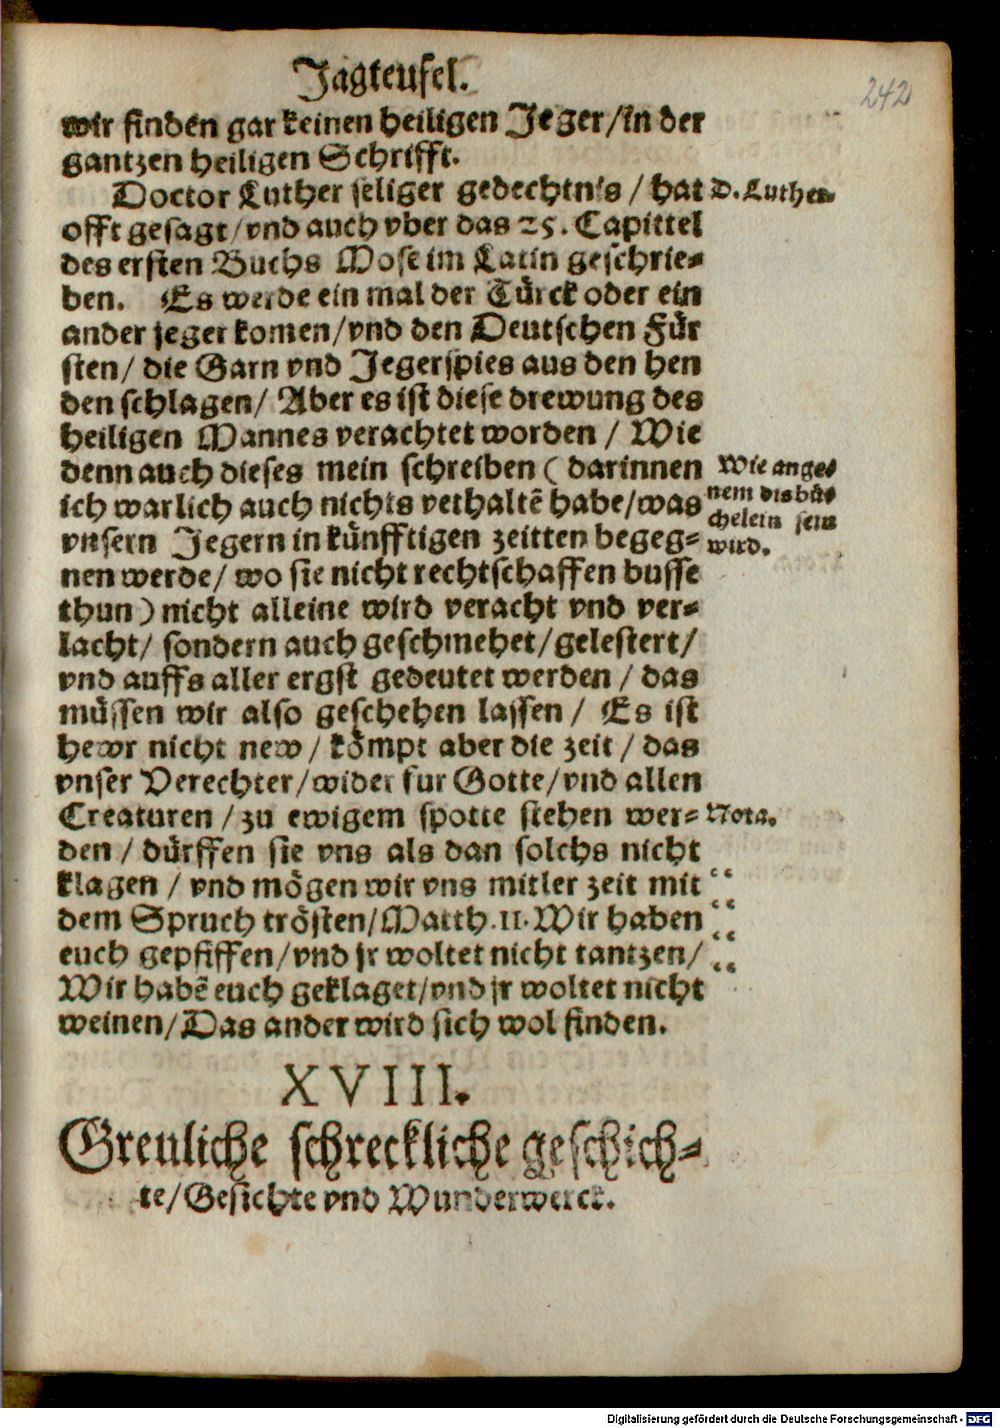 Jagteufel.
242
wir finden gar keinen heiligen Jeger/in der
gantzen heiligen Schrifft.
Doctor Luther seliger gedechtnis / hat
D. Luther.
offt gesagt/vnd auch vber das 25. Capittel
des ersten Buchs Mose im Latin geschrie⸗
ben. Es werde ein mal der Türck oder ein
ander jeger komen/vnd den Deutschen Für
sten/ die Garn vnd Jegerspies aus den hen
den schlagen/ Aber es ist diese drewung des
heiligen Mannes verachtet worden / Wie
denn auch dieses mein schreiben ( darinnen
ich warlich auch nichts verhaltẽ habe/was
vnsern Jegern in künfftigen zeitten begeg⸗
nen werde/ wo sie nicht rechtschaffen busse
thun ) nicht alleine wird veracht vnd ver⸗
lacht/ sondern auch geschmehet/gelestert/
vnd auffs aller ergst gedeutet werden / das
müssen wir also geschehen lassen / Es ist
hewr nicht new / kömpt aber die zeit / das
vnser Verechter/wider fur Gotte/vnd allen
Creaturen / zu ewigem spotte stehen wer⸗
den / dürffen sie vns als dan solchs nicht
klagen / vnd mögen wir vns mitler zeit mit
dem Spruch trösten/Matth.11.Wir haben
euch gepfiffen/vnd jr woltet nicht tantzen/
Wir habẽ euch geklaget/vnd jr woltet nicht
weinen/Das ander wird sich wol finden.
Wie ange⸗
nem dis bü⸗
chelein sein
wird.
Nota.
XVIII.
Greuliche schreckliche geschich⸗
te/Gesichte vnd Wunderwerck.
Digitalisierung gefördert durch die Deutsche Forschungsgemeinschaft - DFG